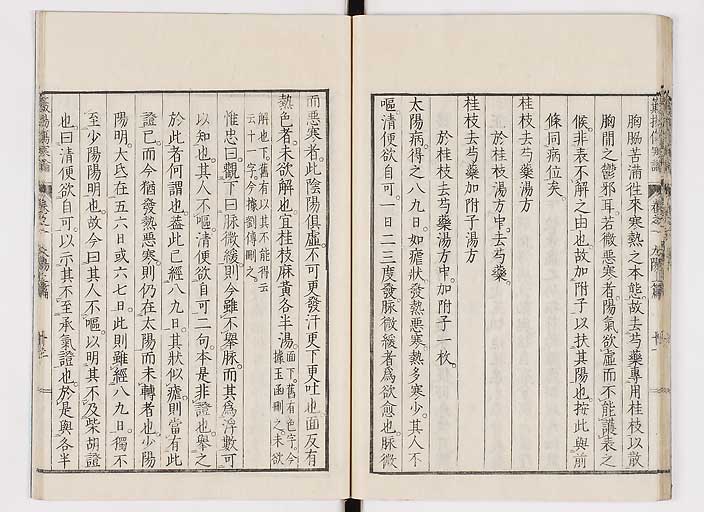 胸脇苦滿徃來寒熱之本態故去芍藥專用桂枝以散
胸閒之鬱邪耳若微惡寒者陽氣欲虛而不能護表之
候非表不解之由也故加附子以扶其陽也按此與前
條同病位矣
桂枝去芍藥湯方
於桂枝湯方中去芍藥
桂枝去芍藥加附子湯方
於桂枝去芍藥湯方中加附子一枚
太陽病得之八九日如瘧狀發熱惡寒熱多寒少其人不
嘔清便欲自可一日二三度發脉微緩者爲欲愈也脉微
而惡寒者此陰陽俱虛不可更發汗更下更吐也面反有
熱色者未欲解也宜桂枝麻黃各半湯面下舊有色字今據玉函刪之未欲
解也下舊有以其不能得云
云十一字今據劉傳刪之
惟忠曰觀下曰脉微緩則今雖不舉脉而其爲浮數可
以知也其人不嘔清便欲自可二句本是非證也舉之
於此者何謂也葢此已經八九日其狀似瘧則當有此
證已而今猶發熱惡寒則仍在太陽而未轉者也少陽
陽明大氐在五六日或六七日此則雖經八九日獨不
至少陽陽明也故今曰其人不嘔以明其不及柴胡證
也曰清便欲自可以示其不至承氣證也於是與各半